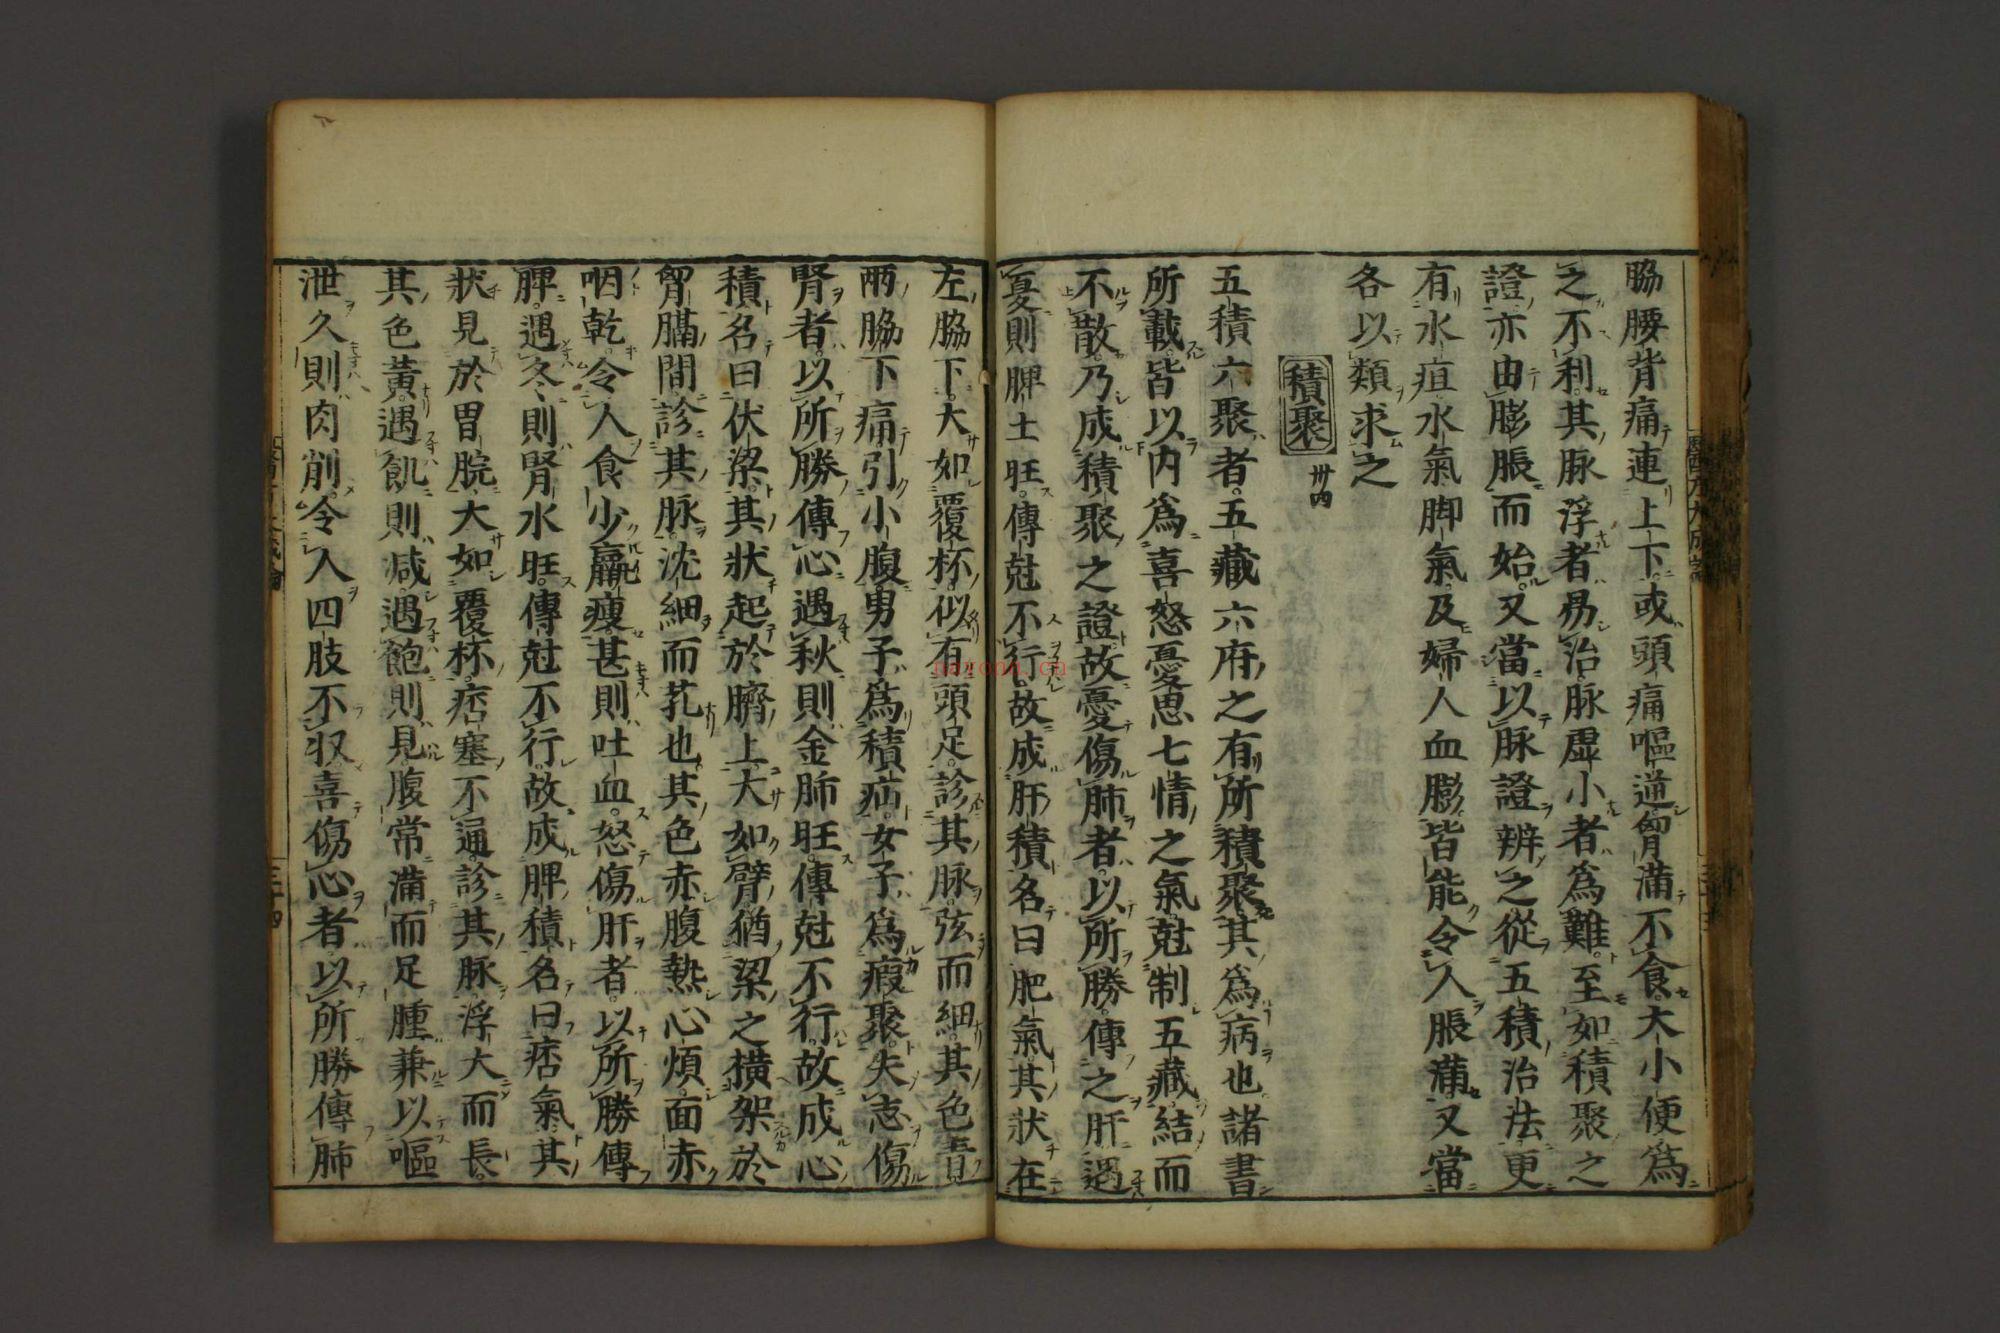 脇腰背痛連上下或頭痛嘔逆胷滿不食大小便爲
之不利其脉浮者易治脉虛小者爲難至如積聚之
證亦由膨脹而始又當以脉證辨之從五積治法更
有水疽水氣脚氣及婦人血膨皆能令人脹滿又當
各以類求之
積聚
五積六聚者五藏六府之有所積聚其爲病也諸書
所載皆以内爲喜怒憂思七情之氣尅制五藏結而
不散乃成積聚之證故憂傷肺者以所勝傳之肝遇
夏則脾土旺傳尅不行故成肝積名曰肥氣其狀在
左脇下大如覆杯似有頭足診其脉弦而細其色青
兩脇下痛引小腹男子爲積疝女子爲瘕聚失志傷
腎者以所勝傳心遇秋則金肺旺傳尅不行故成心
積名曰伏梁其狀起於臍上大如臂猶梁之橫架於
胷膈間診其脉沈細而芤也其色赤腹熱心煩面赤
咽乾令人食少羸瘦甚則吐血怒傷肝者以所勝傳
脾遇冬則腎水旺傳尅不行故成脾積名曰痞氣其
狀見於胃脘大如覆杯痞塞不通診其脉浮大而長
其色黃遇飢則減遇飽則見腹常滿而足腫兼以嘔
泄久則肉削令人四肢不収喜傷心者以所勝傳肺